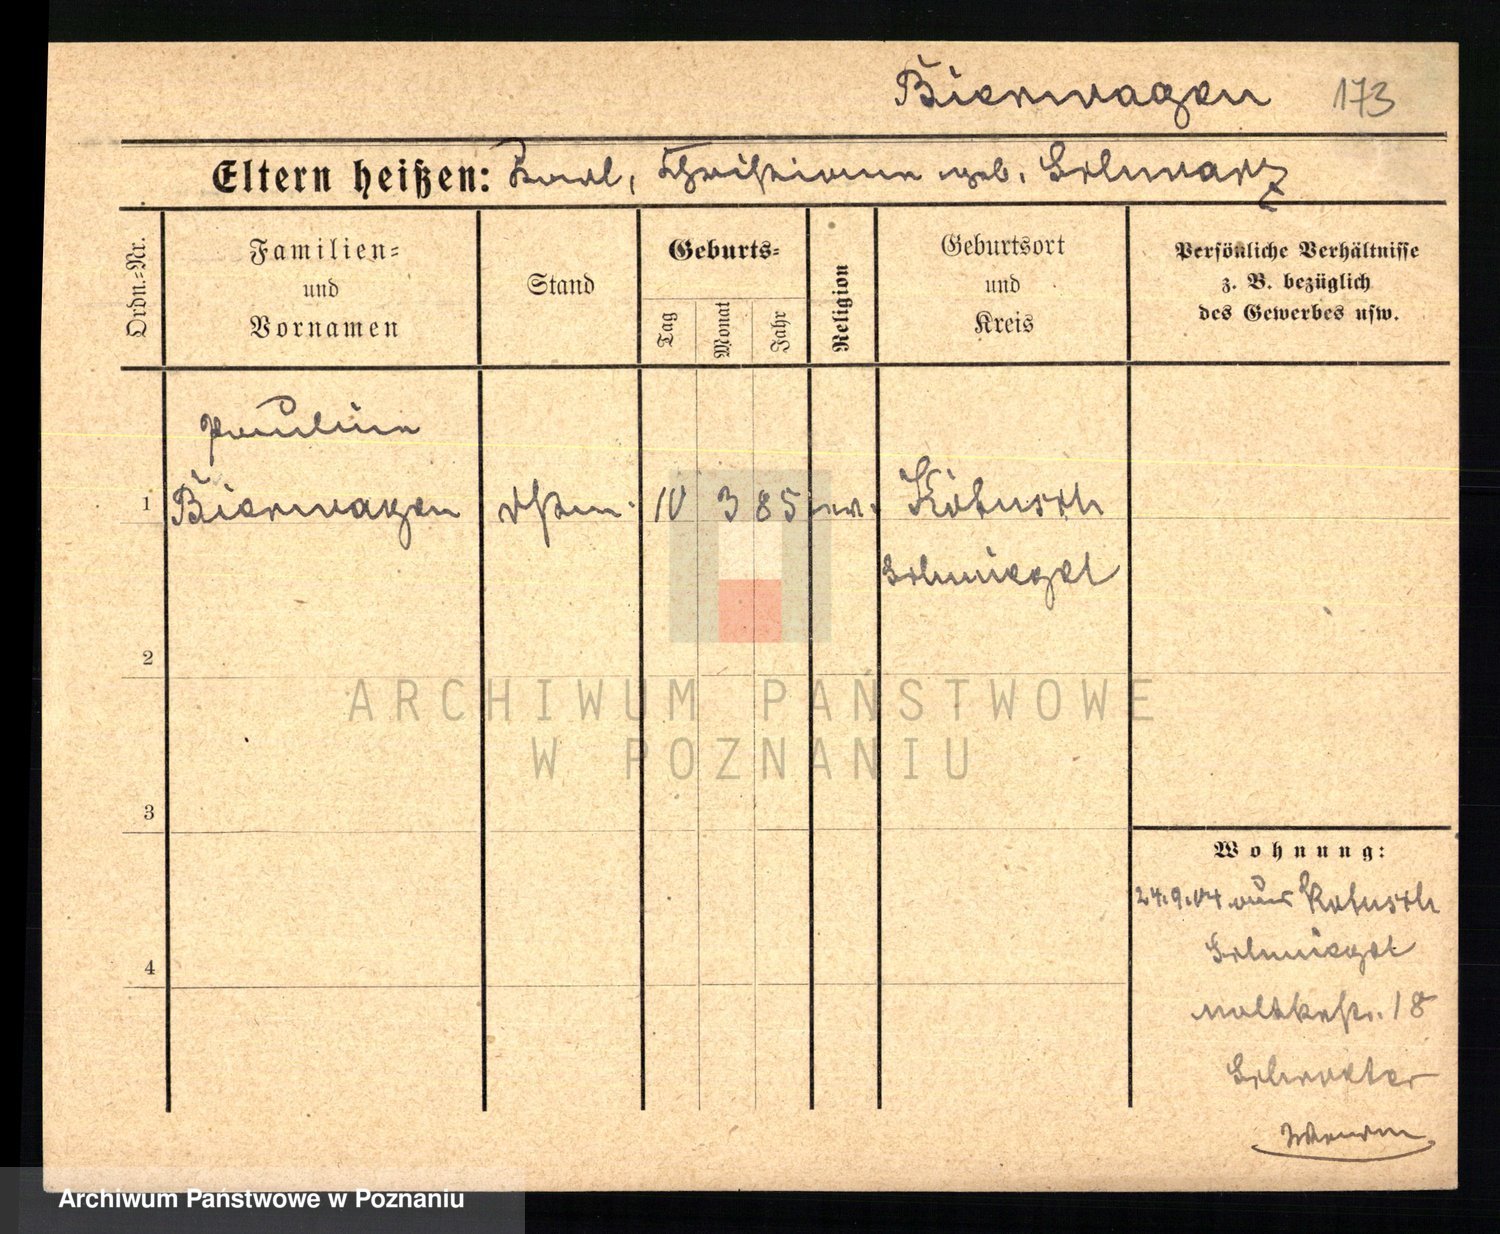 Bierwagen 173
Eltern heißen: Karl, Christiane geb. Schwarz
Ordn.-Nr.
Familien-
und
Vornamen
Stand
Geburts-
Tag
Monat
Jahr
Religion
Geburtsort
und
Kreis
Persönliche Verhältnisse
z. B. bezüglich
des Gewerbes usw.
Pauline
1 Bierwagen 10 3 85 ev. Kotusch
Schmiegel
2
3
4
Wohnung:
24.9.04 aus Kotusch
Schmiegel
Moltkestr. 18
Schroeter
ARCHIWUM PAŃSTWOWE
W POZNANIU
Archiwum Państwowe w Poznaniu